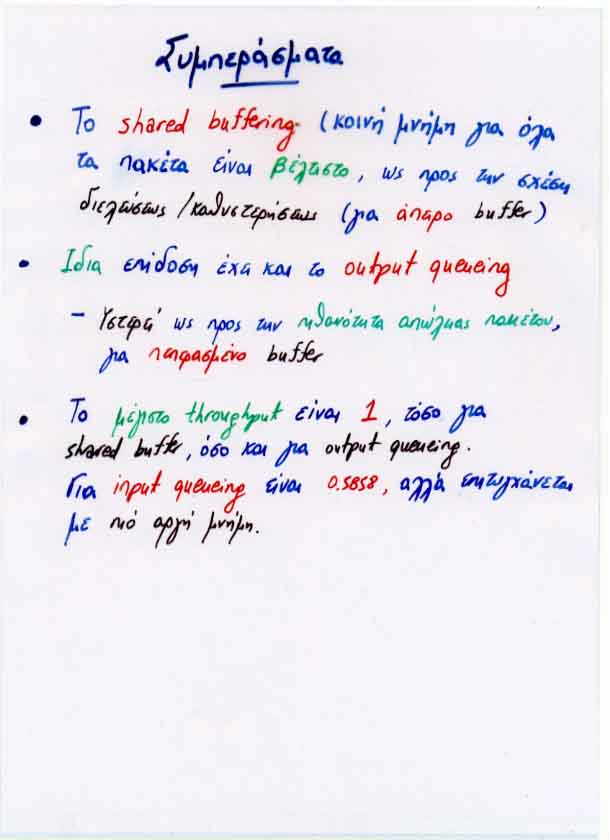 Συμπεράσματα
• Το shared buffering (κοινή μνήμη για όλα
τα πακέτα είναι βέλτιστο, ως προς την σχέση
διελεύσεως/καθυστερήσεως (για άπειρο buffer)
• Ιδια επίδοση έχει και το output queueing
- Υστερεί ως προς την πιθανότητα απώλειας πακέτου,
για πεπερασμένο buffer
• Το μέγιστο throughput είναι 1, τόσο για
shared buffer, όσο και για output queueing.
Για input queueing είναι 0.5858, αλλά επιτυγχάνεται
με πιό αργή μνήμη.